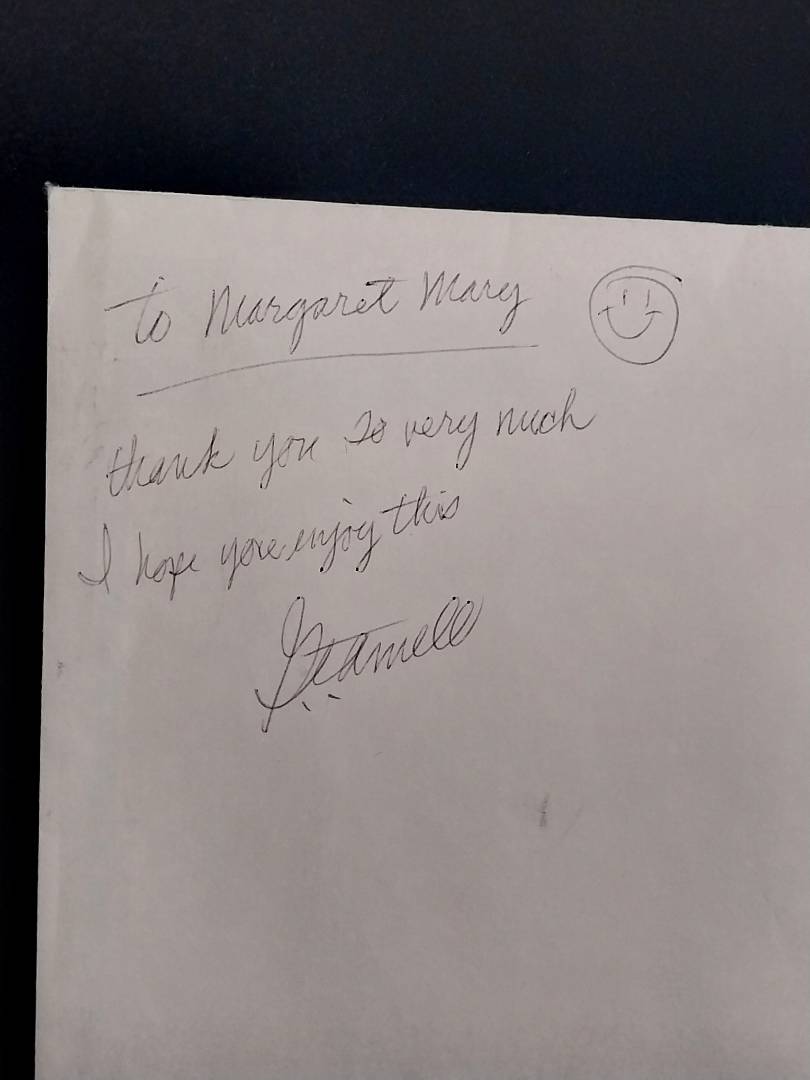 to Margaret Mary
thank you so very much
I hope you enjoy this